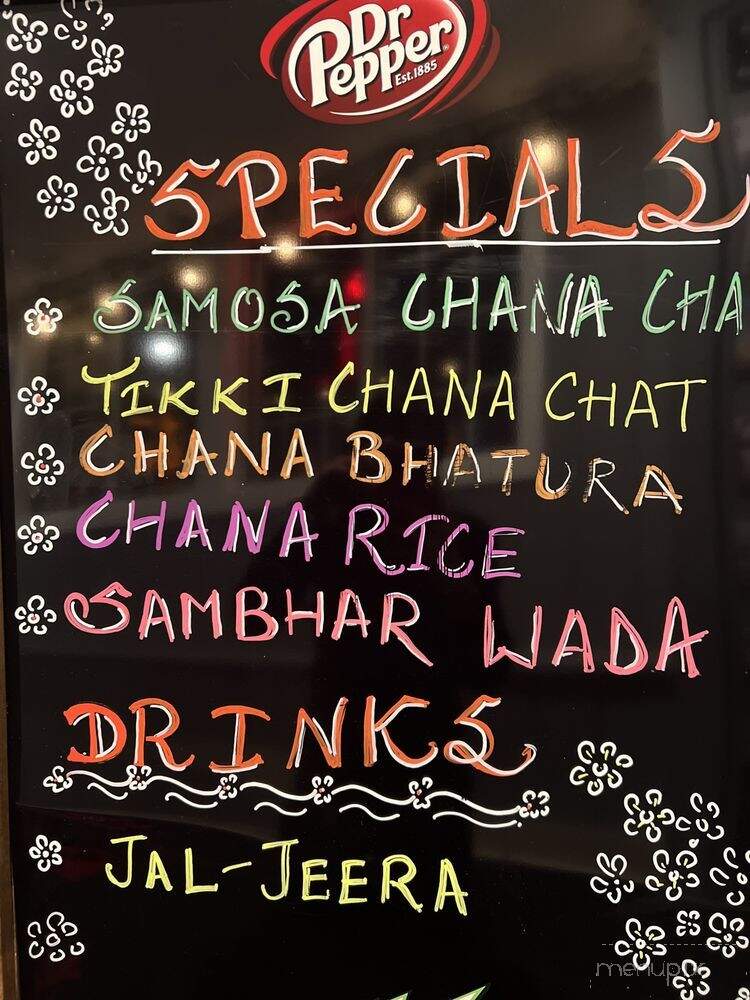 Dr
Pepper
Est. 1885
SPECIALS
SAMOSA CHANA CHA
TIKKI CHANA CHAT
CHANA BHATURA
CHANA RICE
SAMBHAR WADA
DRINKS
JAL-JEERA